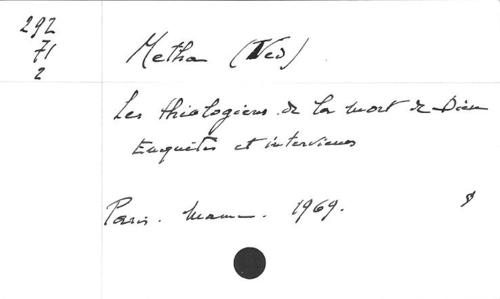 292
71
2
Metha (Ved)
Les théologiens de la mort de Dieu
Enquêtes et interviews
Paris. Mame. 1969. 8